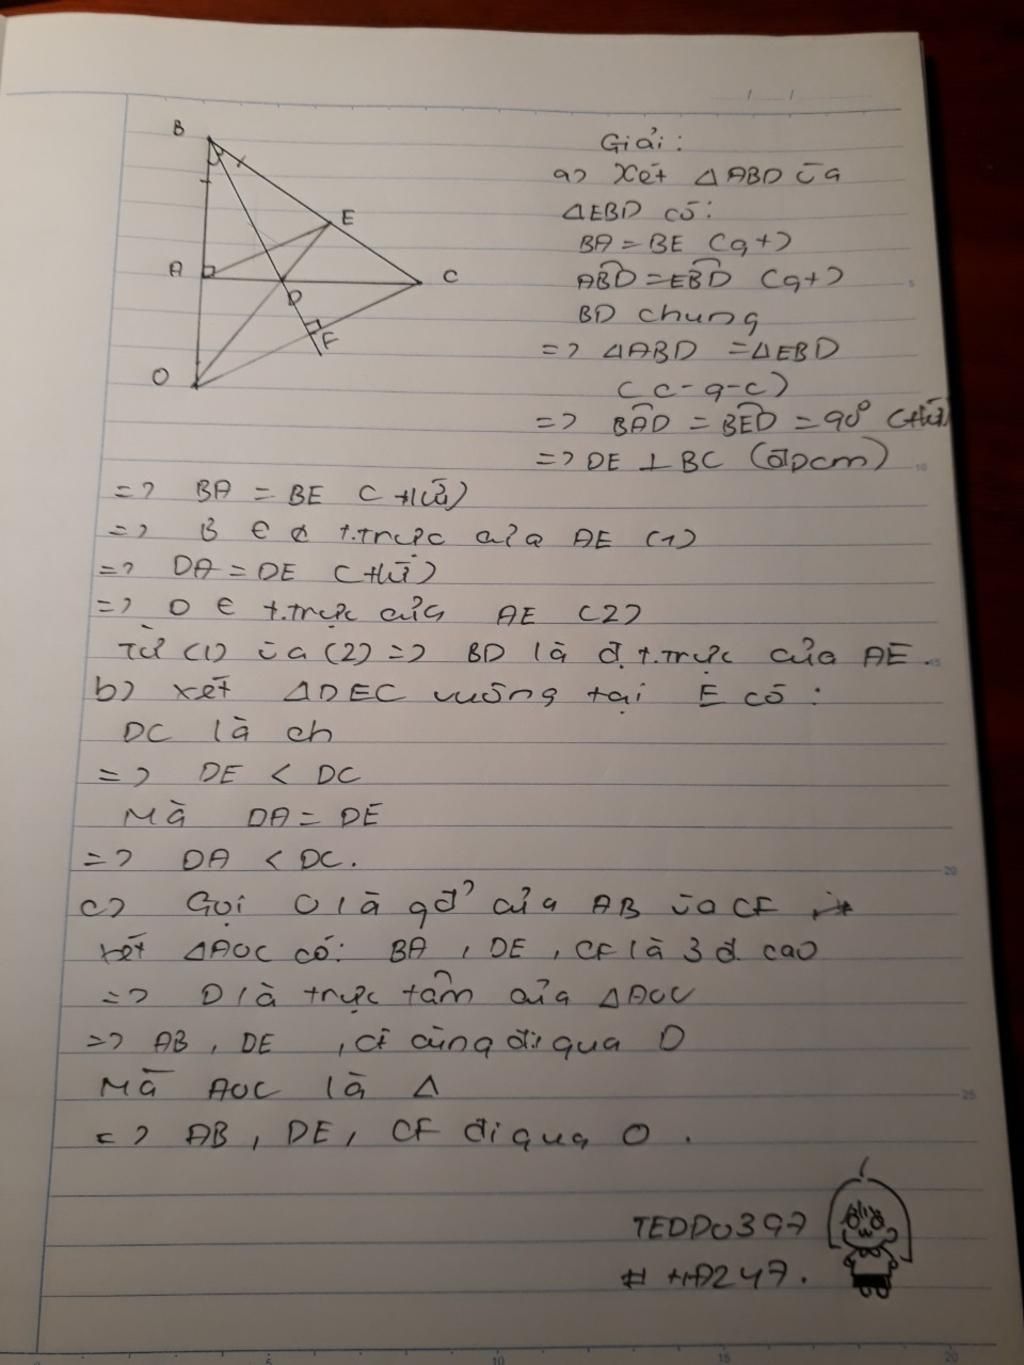 B
E
A
C
D
F
O
Giải:
a) Xét △ABD và
△EBD có:
BA = BE (gt)
ABD = EBD (gt)
BD chung
=> △ABD = △EBD
(c-g-c)
=> BAD = BED = 90°
=> DE ⊥ BC (đpcm)
=> BA = BE
=> B ∈ t.trực của AE (1)
=> DA = DE
=> D ∈ t.trực của AE (2)
Từ (1) và (2) => BD là đ t.trực của AE.
b) xét △DEC vuông tại E có:
DC là ch
=> DE < DC
Mà DA = DE
=> DA < DC.
c) Gọi O là gđ' của AB và CF
xét △AOC có: BA, DE, CF là 3 đ. cao
=> D là trực tâm của △AOC
=> AB, DE, CF cùng đi qua D
Mà AOC là △
=> AB, DE, CF đi qua O.
TEDDU397